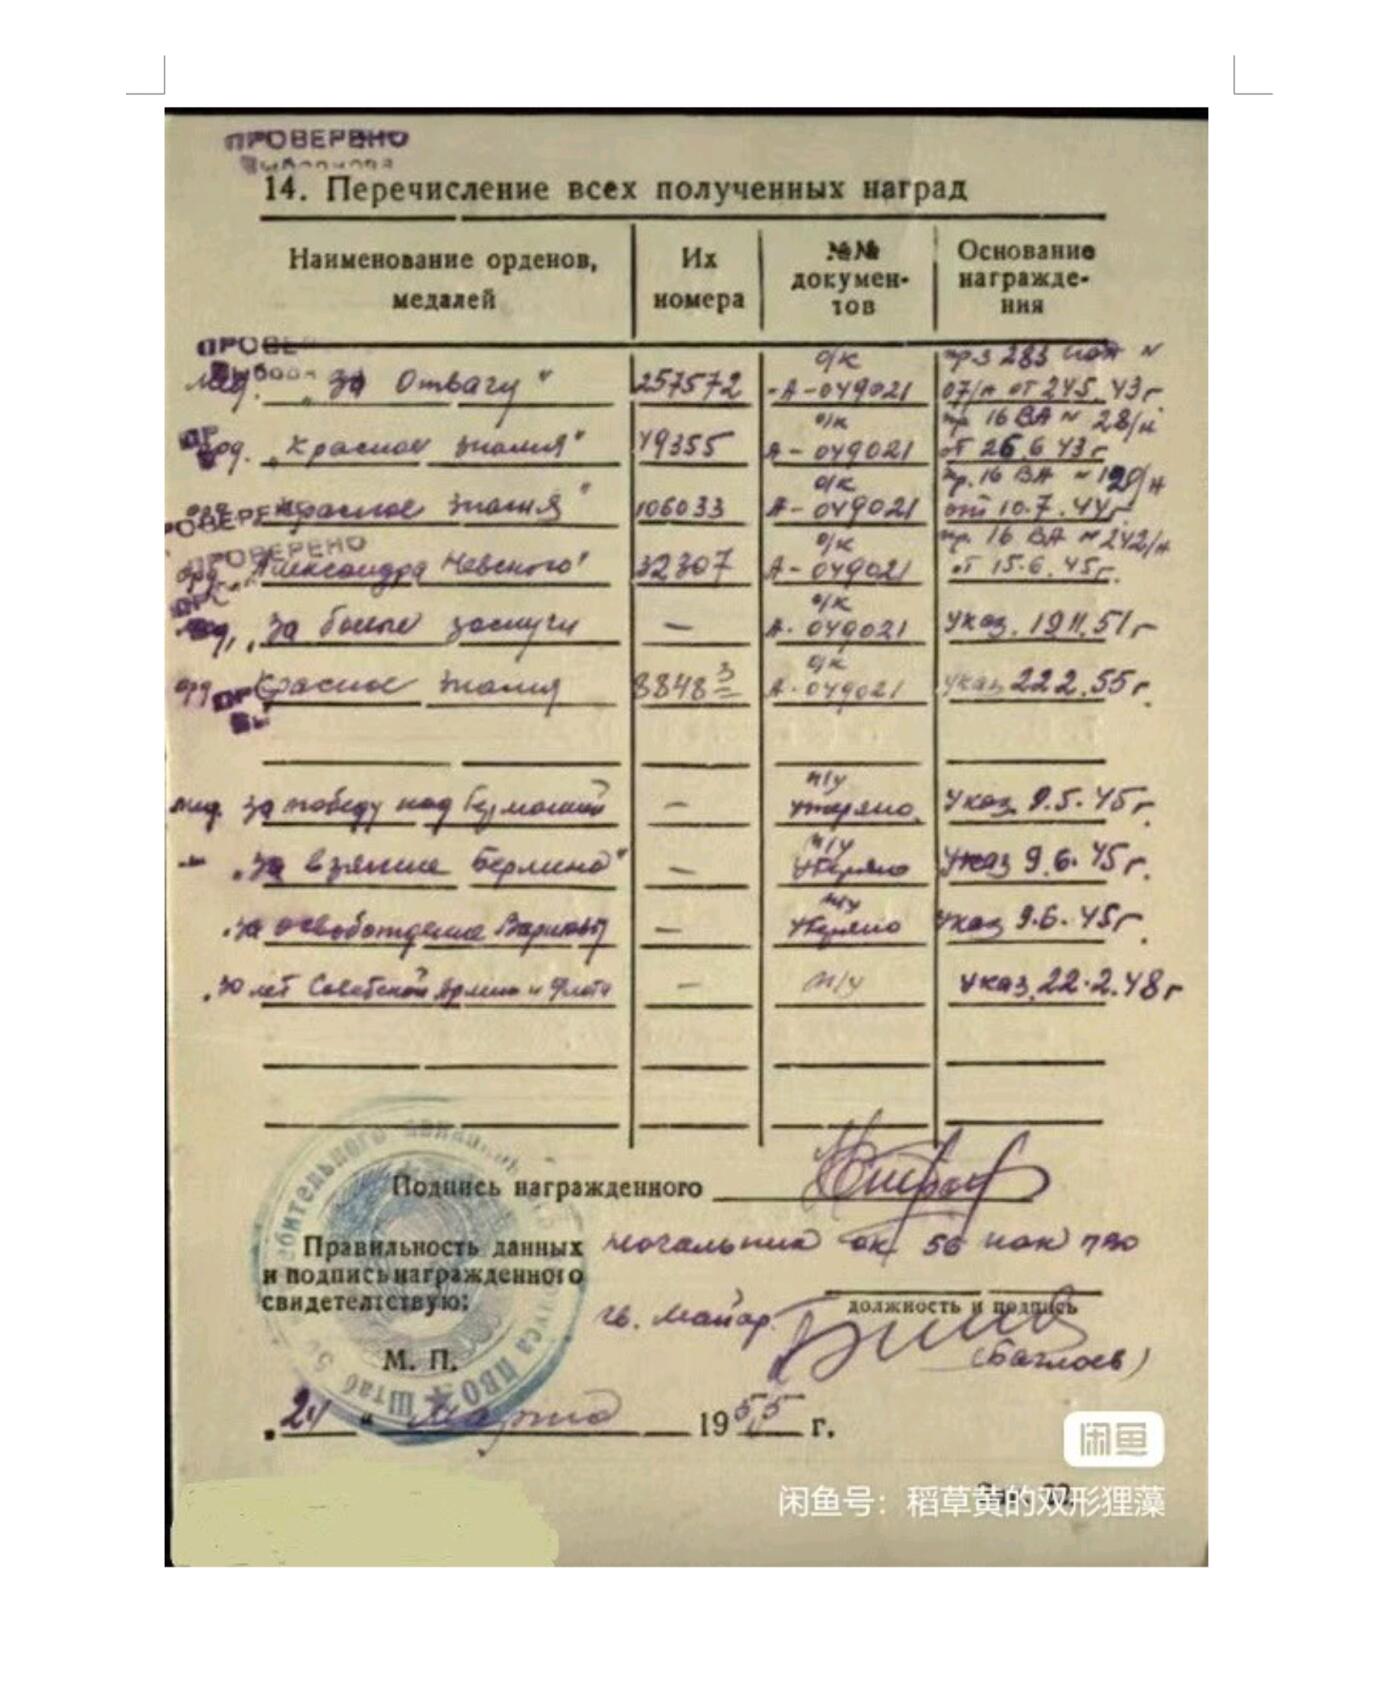 ПРОВЕРЕНО
14. Перечисление всех полученных наград
Наименование орденов, медалей
Их номера
№№ докумен-тов
Основание награжде-ния
о/к
мед. „За Отвагу" 257572 А-049021 от 24.5.43г
о/к пр. 16 ВА № 28/н
орд. „Красное знамя" 49355 А-049021 от 26.6.43г
о/к пр. 16 ВА №
„Красное знамя" 106033 А-049021 от 10.7.44г
ПРОВЕРЕНО
ПРОВЕРЕНО о/к пр. 16 ВА № 242/н
орд. „Александра Невского" 32307 А-049021 от 15.6.45г.
о/к
мед. „За боевые заслуги — А-049021 указ. 19.11.51г
о/к
орд. Красное знамя 8848 3 А-049021 указ 22.2.55г.
в/у
мед. за победу над Германией — утеряно. Указ 9.5.45г.
„За взятие Берлина" — утеряно Указ 9.6.45г.
„За освобождение Варшавы — утеряно Указ 9.6.45г.
„30 лет Советской Армии и Флота — Указ 22.2.48г
Подпись награжденного
Правильность данных и подпись награжденного свидетельствую:
начальник ок 56 иак пво
должность и подпись
гв. майор
М. П.
„24" Марта 1955 г.
Штаб
闲鱼
闲鱼号：稻草黄的双形狸藻